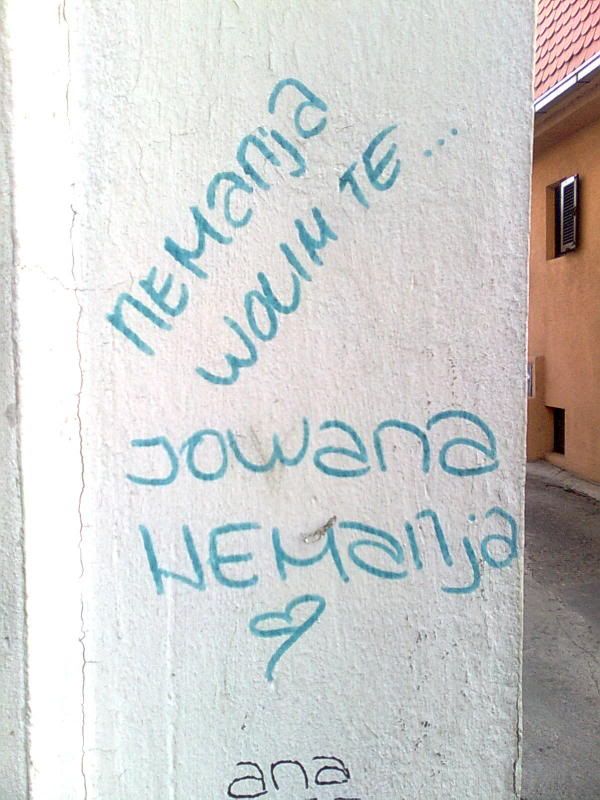 NEManja
WOLIM TE...
JOWana
NEManja
ana